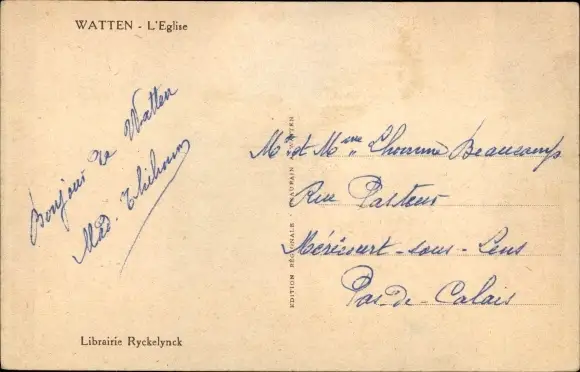 WATTEN - L'Eglise
Bonjour de Watten
Mad.
EDITION RÉGIONALE - BEAUPAIN WATTEN
Mr et Mme Lhomme Beaucamp
Rue Pasteur
Méricourt-sous-Lens
Pas-de-Calais
Librairie Ryckelynck